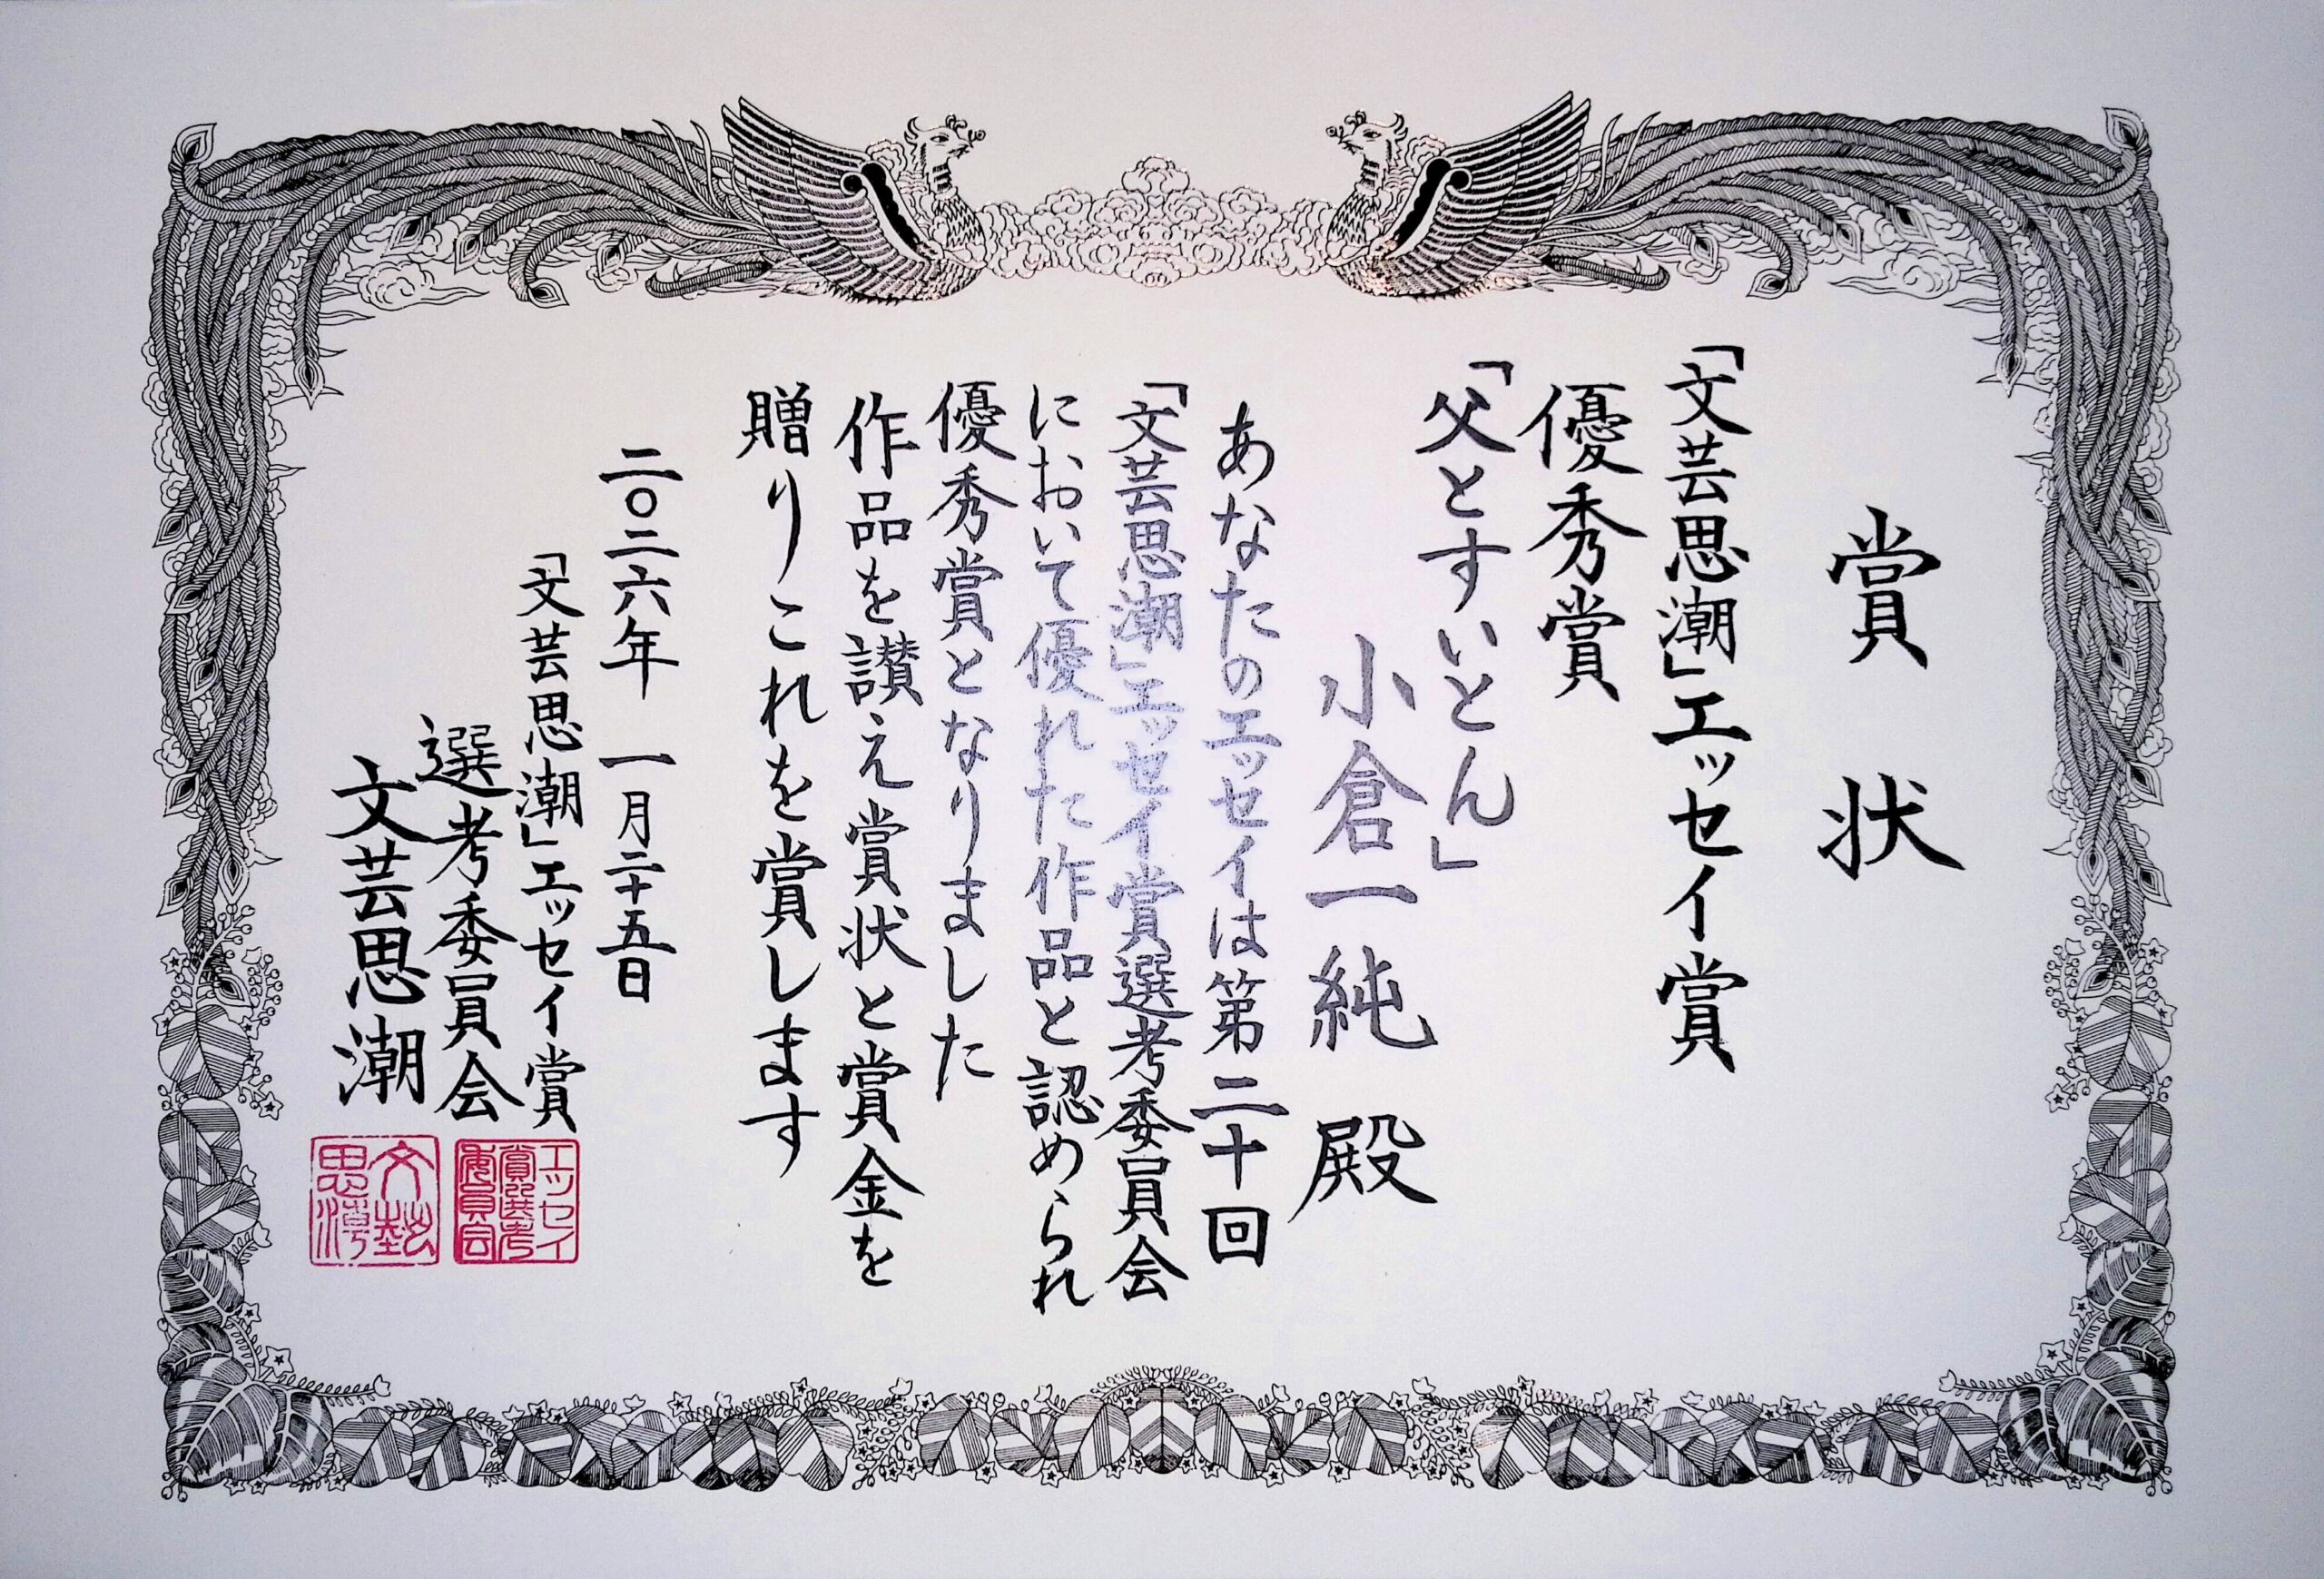 賞状
「文芸思潮」エッセイ賞
優秀賞
「父とすいとん」
小倉一純 殿
あなたのエッセイは第二十回
「文芸思潮」エッセイ賞選考委員会
において優れた作品と認められ
優秀賞となりました
作品を讃え賞状と賞金を
贈りこれを賞します
二〇二六年 一月二十五日
「文芸思潮」エッセイ賞
選考委員会
文芸思潮
エッセイ
賞選考
委員会
文藝
思潮